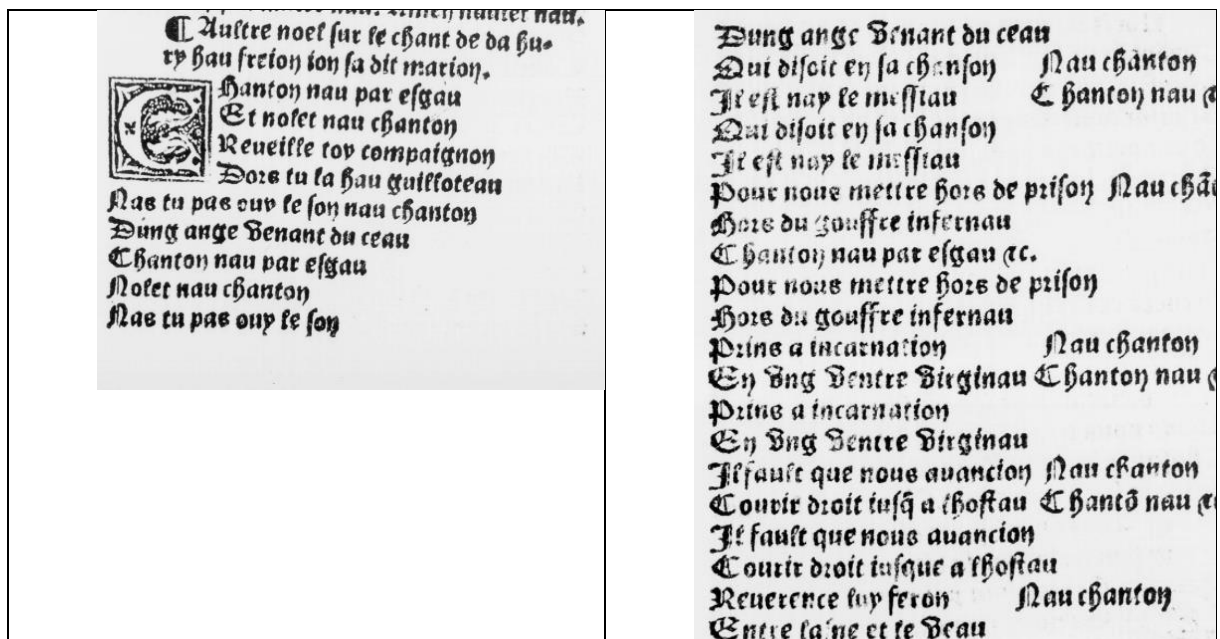 nau.
¶ Aultre noel sur le chant de da hu-
ry hau freion ion sa dit marion.
CHanton nau par esgau
Et nolet nau chanton
Reueille toy compaignon
Dors tu la hau guilloteau
Nas tu pas ouy le son nau chanton
Dung ange venant du ceau
Chanton nau par esgau
Nolet nau chanton
Nas tu pas ouy le son
Dung ange venant du ceau
Qui disoit en sa chanson Nau chanton
Il est nay le messiau Chanton nau
Qui disoit en sa chanson
Il est nay le messiau
Pour nous mettre hors de prison Nau
Hors du gouffre infernau
Chanton nau par esgau ⁊c.
Pour nous mettre hors de prison
Hors du gouffre infernau
Prins a incarnation Nau chanton
En vng ventre virginau Chanton nau
Prins a incarnation
En vng ventre virginau
Il fault que nous auancion Nau chanton
Courir droit iusq̃ a lhostau Chantõ nau
Il fault que nous auancion
Courir droit iusque a lhostau
Reuerence luy feron Nau chanton
Entre lasne et le veau